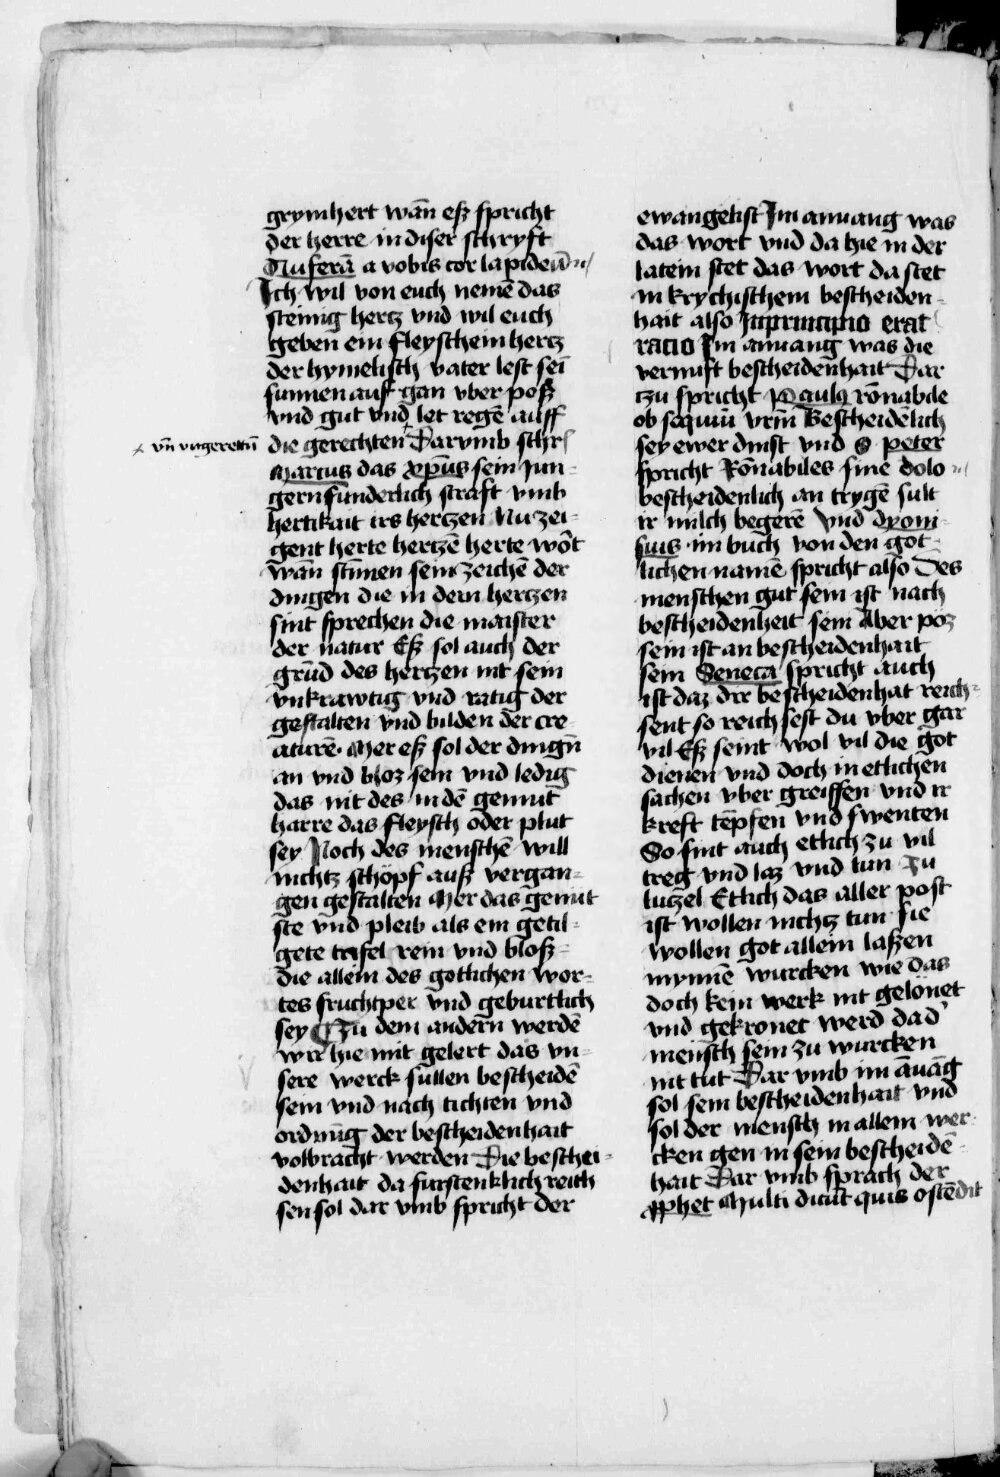 grymhert wān eß spricht
der herre in diser schryft
Auferā a vobis cor lapideū
Ich wil von euch nemē das
steinig hertz vnd wil euch
geben ein fleyschein hertz
der hymelisch vater lest sei
sunnen auf gan vber poß
vnd gut vnd let regē auff
+ vn̄ vngerettū
die gerechten + Darvmb schr
Marcus das xp̄us sein Jun-
gern sunderlich straft vmb
hertikait irs hertzen Nu zei-
gent herte hertzē herte wo̅t
wān stīmen sein zeichē der
dingen die in dem hertzen
sint sprechen die maister
der natur Eß sol auch der
grūd des hertzen nit sein
vnkrawtig vnd ratig der
gestalten vnd bilden der cre-
aturē. Mer eß sol der dingn̄
an vnd bloz sein vnd ledig
das nit des in dē gemut
harre das fleysch oder plut
sey Noch des menschē will
nichtz schöpf auß vergan-
gen gestalten Mer das gemut
ste vnd pleib als ein getil-
gete tafel rein vnd bloß-
die allein des gotlichen wor-
tes fruchtper vnd geburtlich
sey Zu dem andern werdē
wir hie mit gelert das vn-
sere werck sullen bescheidē
sein vnd nach tichten vnd
ordnūg der bescheidenhait
volbracht werden Die beschei-
denhait da furstenklich reich
sen sol dar vmb spricht der
ewangelist Im anuang was
das wort vnd da hie in der
latein stet das wort da stet
in krychischem bescheiden-
hait also Inprincipio erat
racio Im anuang was die
vernuft bescheidenhait Dar
tzu spricht Paulus rōnabile
ob sequiū vrm̄ Bescheidēlich
sey ewer dinst vnd S peter
spricht Rōnabiles sine dolo
bescheidenlich an trygē sult
ir milch begerē vnd dyoni-
sius im buch von den got-
lichen namē spricht also Des
menschen gut sein ist nach
bescheidenheit sein Aber poz
sein ist an bescheidenhait
sein Seneca spricht auch
ist daz dir bescheidenhat reich-
sent so reich sest du vber gar
vil Eß seint wol vil die got
dienen vnd doch in etlichen
sachen vber greiffen vnd ir
kreft tēpfen vnd swenten
So sint auch etlich zu vil
treg vnd laz vnd tun zu
lutzel Etlich das aller post
ist wollen nichtz tun sie
wollen got allein laßen
mynnē wurcken wie das
doch kein werk nit gelönet
vnd gekronet werd dad'
mensch sein zu wurcken
nit tut Dar vmb im āuāg
sol sein bescheidenhait vnd
sol der mensch in allem wer-
cken gen in sein bescheidē-
hait Dar vmb sprach der
p̄phet Multi dicūt quis ostēdit